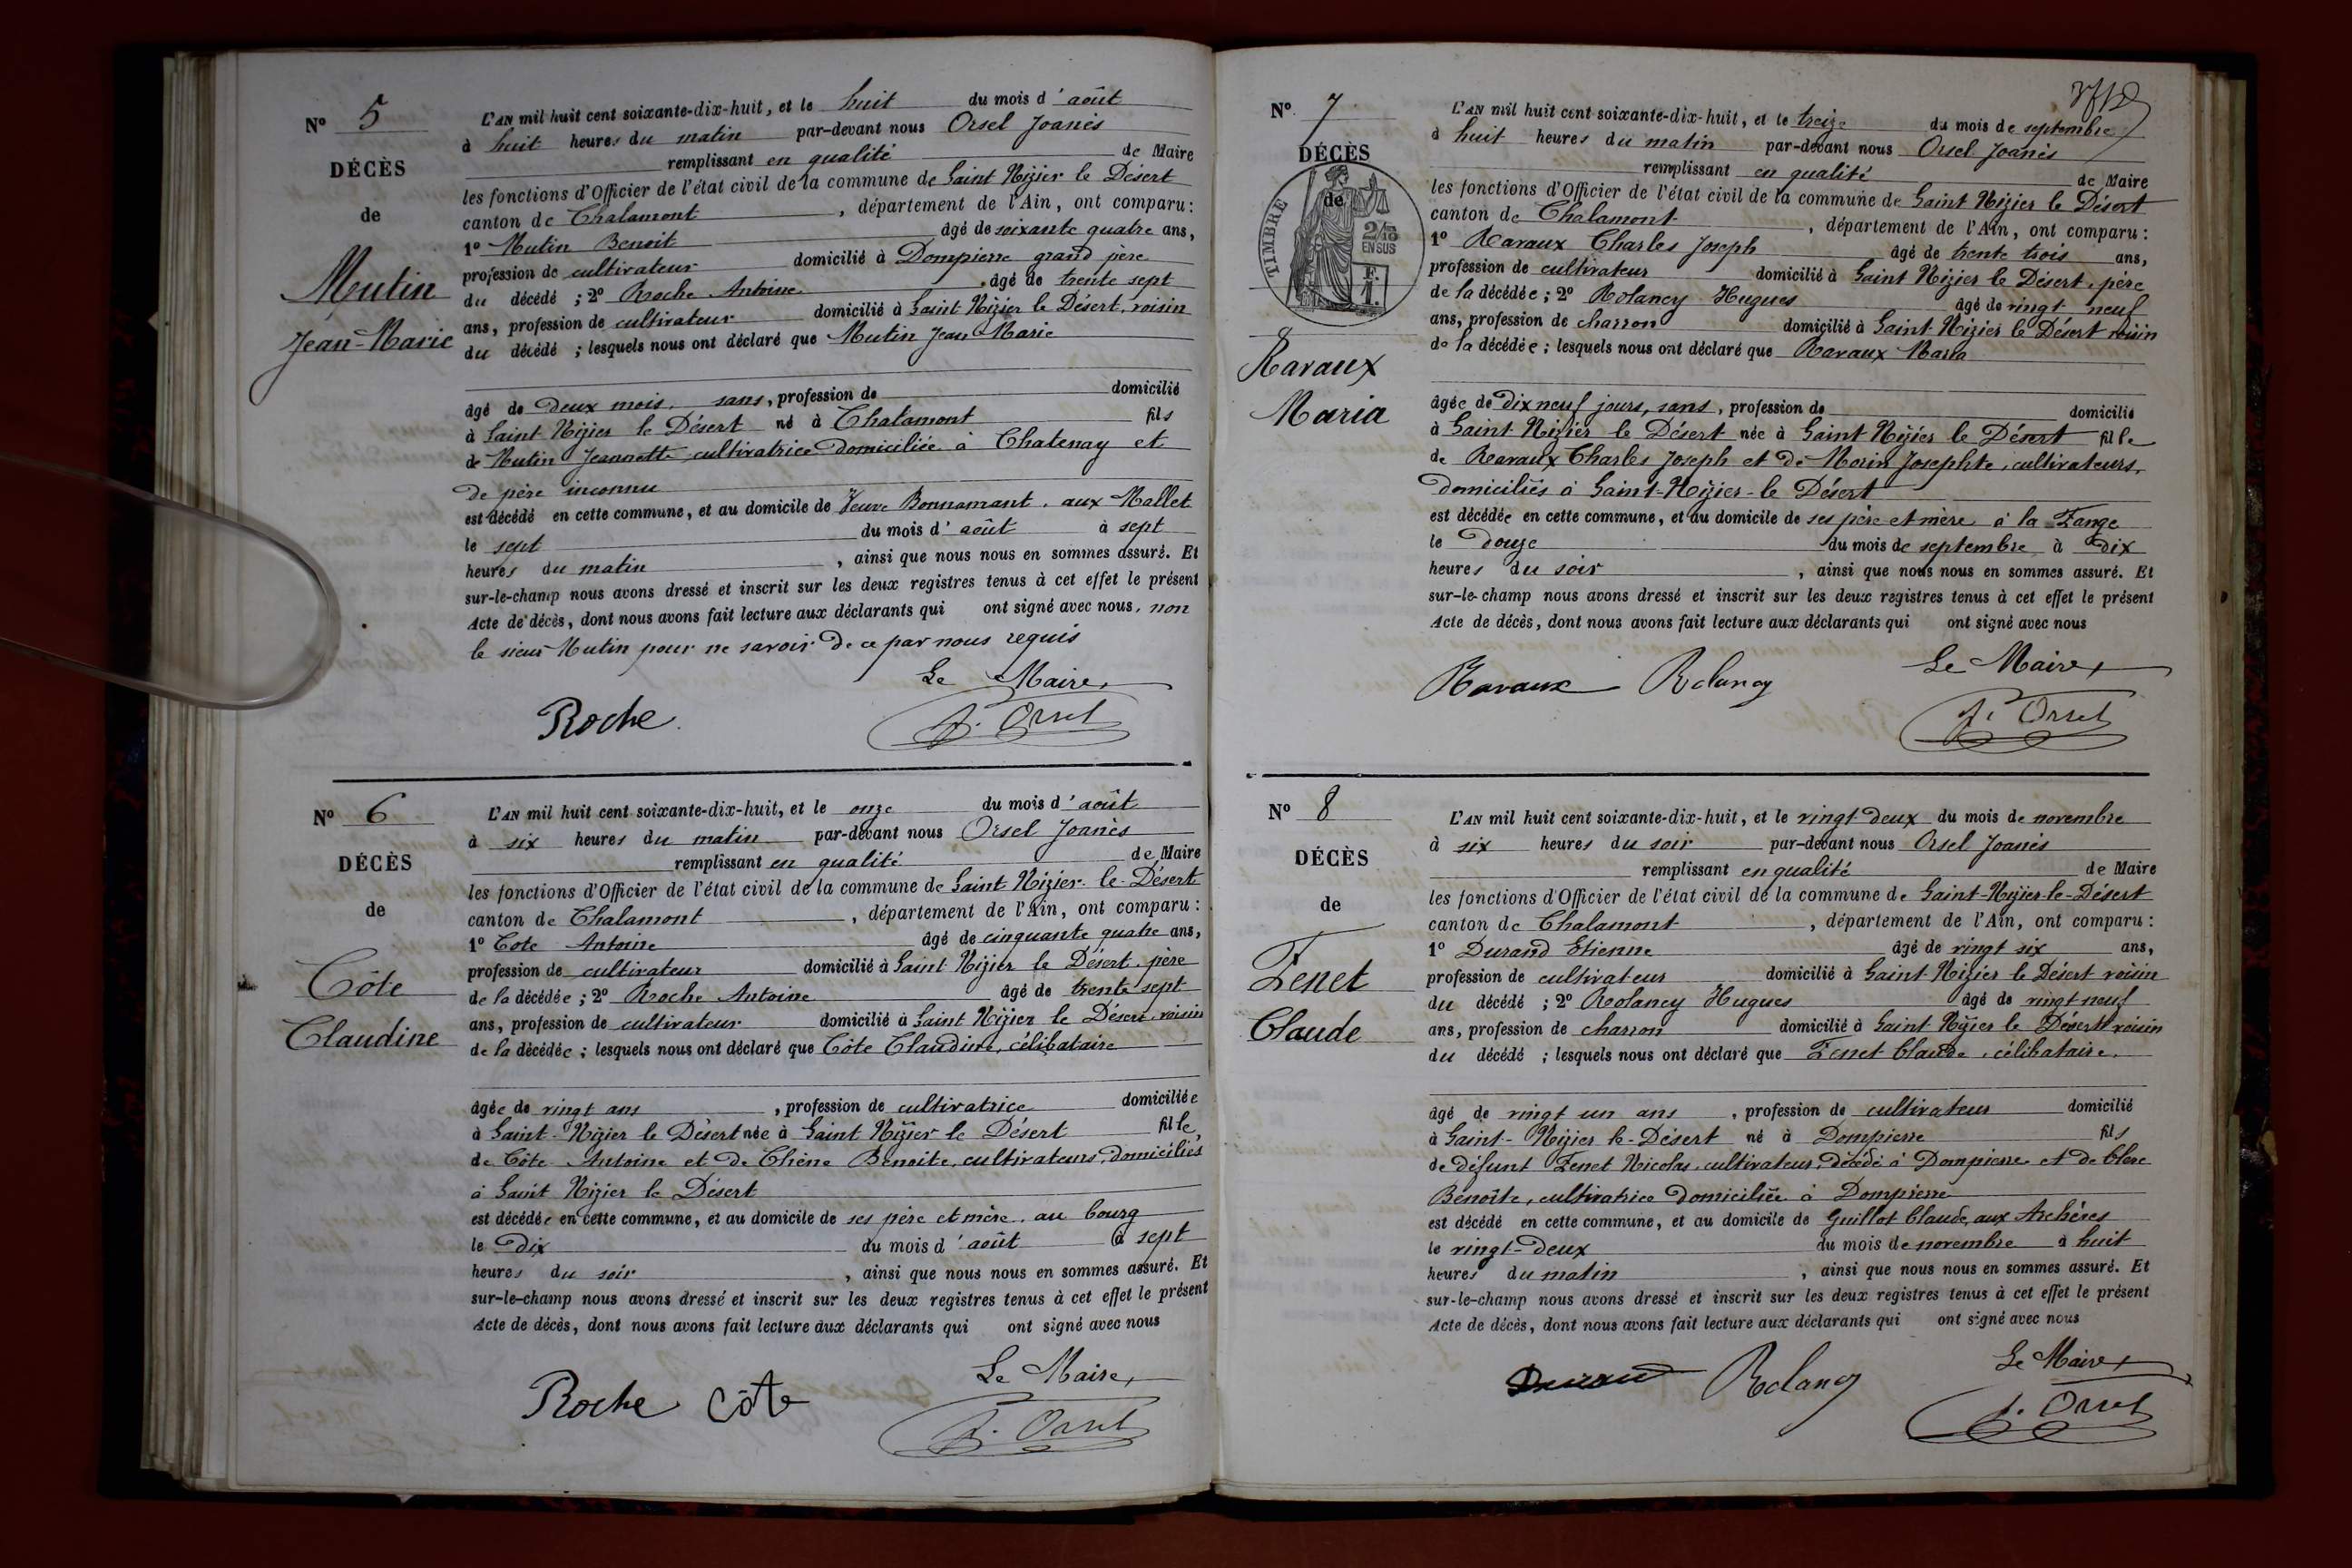 N° 5
DÉCÈS
de
Mutin
Jean-Marie
L'AN mil huit cent soixante-dix-huit, et le huit du mois d'août
à huit heures du matin par-devant nous Orsel Joanès
remplissant en qualité de Maire
les fonctions d'Officier de l'état civil de la commune de Saint Nizier le Désert
canton de Chalamont, département de l'Ain, ont comparu:
1° Mutin Benoit âgé de soixante quatre ans,
profession de cultivateur domicilié à Dompierre grand père
du décédé ; 2° Roche Antoine, âgé de trente sept
ans, profession de cultivateur domicilié à Saint Nizier le Désert, voisin
du décédé ; lesquels nous ont déclaré que Mutin Jean Marie
âgé de deux mois, sans, profession de domicilié
à Saint Nizier le Désert né à Chalamont fils
de Mutin Jeannette, cultivatrice domiciliée à Chatenay et
de père inconnu
est décédé en cette commune, et au domicile de Veuve Bonnamant, aux Mallet
le sept du mois d'août à sept
heures du matin, ainsi que nous nous en sommes assuré. Et
sur-le-champ nous avons dressé et inscrit sur les deux registres tenus à cet effet le présent
Acte de décès, dont nous avons fait lecture aux déclarants qui ont signé avec nous, non
le sieur Mutin pour ne savoir de ce par nous requis
Le Maire,
Roche J. Orsel
N° 6
DÉCÈS
de
Côte
Claudine
L'AN mil huit cent soixante-dix-huit, et le onze du mois d'août
à six heures du matin par-devant nous Orsel Joanès
remplissant en qualité de Maire
les fonctions d'Officier de l'état civil de la commune de Saint Nizier le Désert
canton de Chalamont, département de l'Ain, ont comparu :
1° Cote Antoine âgé de cinquante quatre ans,
profession de cultivateur domicilié à Saint Nizier le Désert, père
de la décédée ; 2° Roche Antoine âgé de trente sept
ans, profession de cultivateur domicilié à Saint Nizier le Désert voisin
de la décédée ; lesquels nous ont déclaré que Côte Claudine, célibataire
âgée de vingt ans, profession de cultivatrice domiciliée
à Saint-Nizier le Désert née à Saint Nizier le Désert fille,
de Côte Antoine et de Chêne Benoite, cultivateurs, domiciliés
à Saint Nizier le Désert
est décédée en cette commune, et au domicile de ses père et mère, au bourg
le dix du mois d'août à sept
heures du soir, ainsi que nous nous en sommes assuré. Et
sur-le-champ nous avons dressé et inscrit sur les deux registres tenus à cet effet le présent
Acte de décès, dont nous avons fait lecture aux déclarants qui ont signé avec nous
Le Maire,
Roche Côte J. Orsel
N° 7
DÉCÈS
de
TIMBRE
2/10
EN SUS
F.
1.
Ravaux
Maria
L'AN mil huit cent soixante-dix-huit, et le treize du mois de septembre
à huit heures du matin par-devant nous Orsel Joanès
remplissant en qualité de Maire
les fonctions d'Officier de l'état civil de la commune de Saint Nizier le Désert
canton de Chalamont, département de l'Ain, ont comparu :
1° Ravaux Charles Joseph âgé de trente trois ans,
profession de cultivateur domicilié à Saint Nizier le Désert, père
de la décédée ; 2° Rolancy Hugues âgé de vingt neuf
ans, profession de charron domicilié à Saint Nizier le Désert voisin
de la décédée ; lesquels nous ont déclaré que Ravaux Maria
âgée de dix neuf jours, sans, profession de domicilié
à Saint Nizier le Désert née à Saint Nizier le Désert fille
de Ravaux Charles Joseph et de Morin Josephte, cultivateurs,
domiciliés à Saint-Nizier-le Désert
est décédée en cette commune, et au domicile de ses père et mère à la Fange
le douze du mois de septembre à dix
heures du soir, ainsi que nous nous en sommes assuré. Et
sur-le-champ nous avons dressé et inscrit sur les deux registres tenus à cet effet le présent
Acte de décès, dont nous avons fait lecture aux déclarants qui ont signé avec nous
Le Maire,
Ravaux Rolancy J. Orsel
N° 8
DÉCÈS
de
Fenet
Claude
L'AN mil huit cent soixante-dix-huit, et le vingt-deux du mois de novembre
à six heures du soir par-devant nous Orsel Joanès
remplissant en qualité de Maire
les fonctions d'Officier de l'état civil de la commune de Saint-Nizier-le-Désert
canton de Chalamont, département de l'Ain, ont comparu :
1° Durand Etienne âgé de vingt six ans,
profession de cultivateur domicilié à Saint Nizier le Désert voisin
du décédé ; 2° Rolancy Hugues âgé de vingt neuf
ans, profession de charron domicilié à Saint Nizier le Désert voisin
du décédé ; lesquels nous ont déclaré que Fenet Claude, célibataire,
âgé de vingt un ans, profession de cultivateur domicilié
à Saint-Nizier le-Désert né à Dompierre fils
de défunt Fenet Nicolas, cultivateur, décédé à Dompierre et de Clerc
Benoîte, cultivatrice domiciliée à Dompierre
est décédé en cette commune, et au domicile de Guillot Claude, aux Archères
le vingt-deux du mois de novembre à huit
heures du matin, ainsi que nous nous en sommes assuré. Et
sur-le-champ nous avons dressé et inscrit sur les deux registres tenus à cet effet le présent
Acte de décès, dont nous avons fait lecture aux déclarants qui ont signé avec nous
Le Maire,
Durand Rolancy J. Orsel